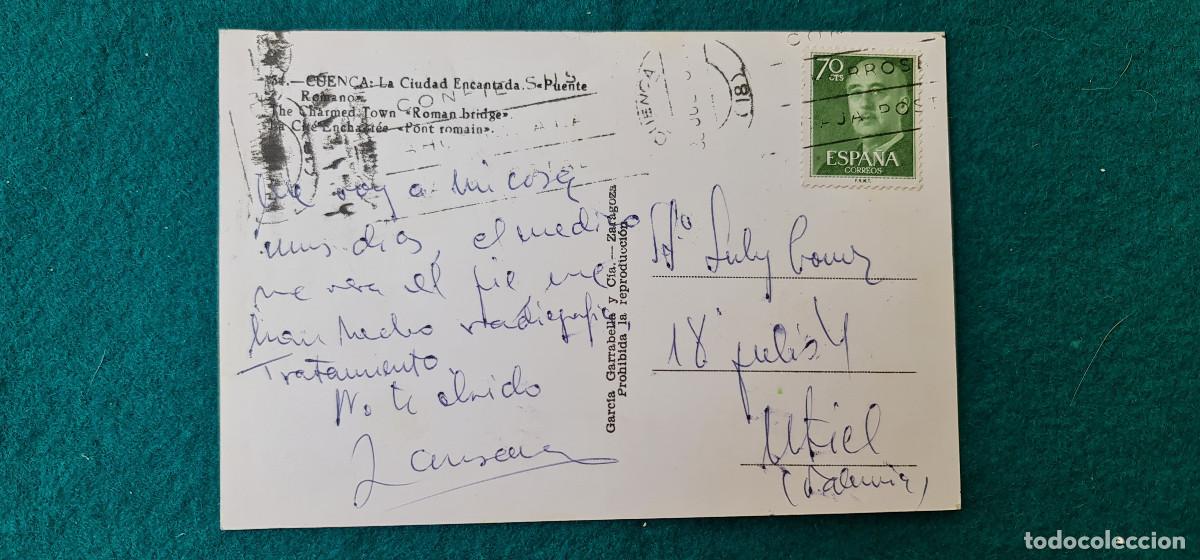 34.—CUENCA: La Ciudad Encantada. «Puente
Romano».
The Charmed Town «Roman bridge».
La Cité Enchantée «Pont romain».
Me voy a mi casa
unos dias, el medico
me vera el pie me
han hecho radiografia
Tratamiento
No te olvido
García Garrabella y Cía.—Zaragoza
Prohibida la reproducción
CUENCA
70
CTS
ESPAÑA
CORREOS
F.N.M.T.
Sta Luly
18 julio 4
Utiel
(Valencia)
todocoleccion